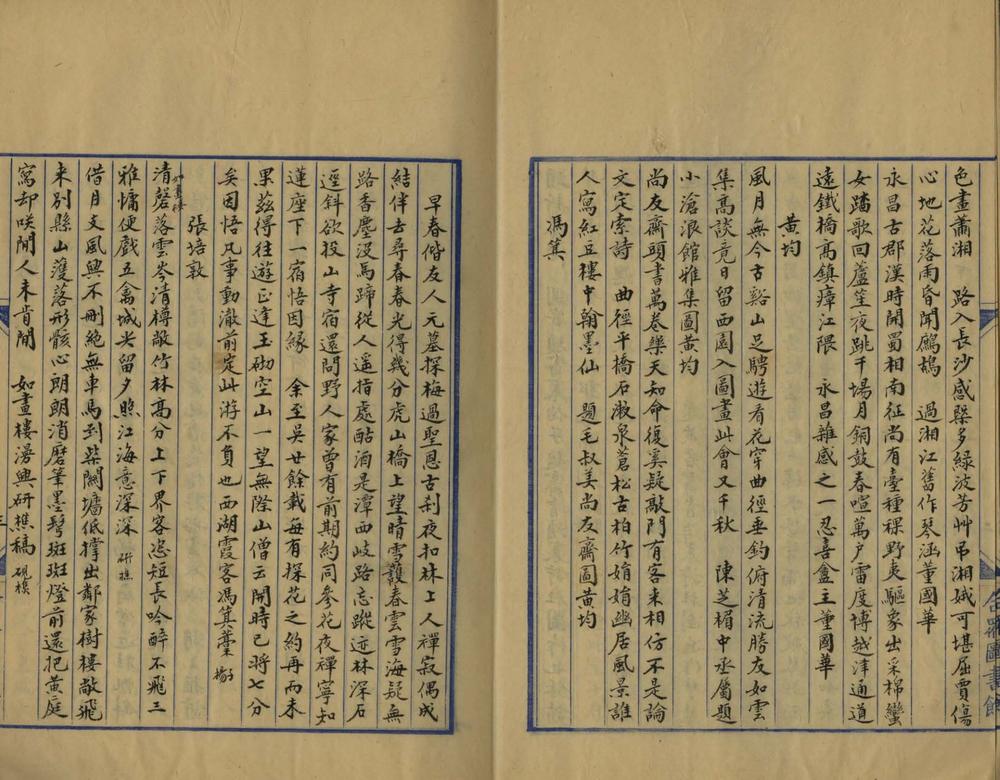 色畫蕭湘　路入長沙感槩多綠波芳艸吊湘娥可堪屈賈傷
心地花落雨昏開鷓鴣　過湘江舊作琴涵董國華
永昌古郡漢時開蜀相南征尚有臺種稞野夷驅象出采棉蠻
女踏歌回蘆笙夜跳千場月銅鼓春喧萬户雷度博越津通道
遠鐵橋高鎮瘴江隈　永昌雜感之一忍菴盒主董國華
黄均
風月無今古谿山足騁遊看花穿曲徑垂釣俯清流勝友如雲
集高談竟日留西園入圖畫此會又千秋　陳芝楣中丞屬題
小滄浪館雅集圖黄均
尚友齋頭書萬卷樂天知命復奚疑敲門有客来相仿不是論
文定索詩　曲徑平橋石漱泉蒼松古柏竹娟娟幽居風景誰
人寫紅豆樓中翰墨仙　題毛叔美尚友齋圖黄均
馮箕
早春偕友人元墓探梅過聖恩古刹夜扣林上人禪寂偶成
結伴去尋春春光得幾分虎山橋上望晴雪護春雲雪海疑無
路香塵没馬蹄從人遥指處酤酒是潭西岐路忘蹤迹林深石
逕斜欲投山寺宿還問野人家曾有前期約同參花夜禪寧知
蓮座下一宿悟因緣　余至吳廿餘載每有探花之約再而未
果兹得往遊正逢玉砌空山一望無際山僧云開時已將七分
矣因悟凡事動澈前定此游不負也　西湖霞客馮箕藁
張培敦
如畫樓
清磬落雲岑清樽敞竹林高分上下界客忘短長吟醉不飛三
雅慵便戲五禽城尖留夕照江海意深深　研樵
借月文風興不刪絶無車馬到柴關墻低撐出鄰家樹樓敞飛
来别縣山蒦落形骸心朗朗消磨筆墨鬓斑斑燈前還把黄庭
寫却咲閒人未肯閒　如畫樓漫興研樵稿　硯樵